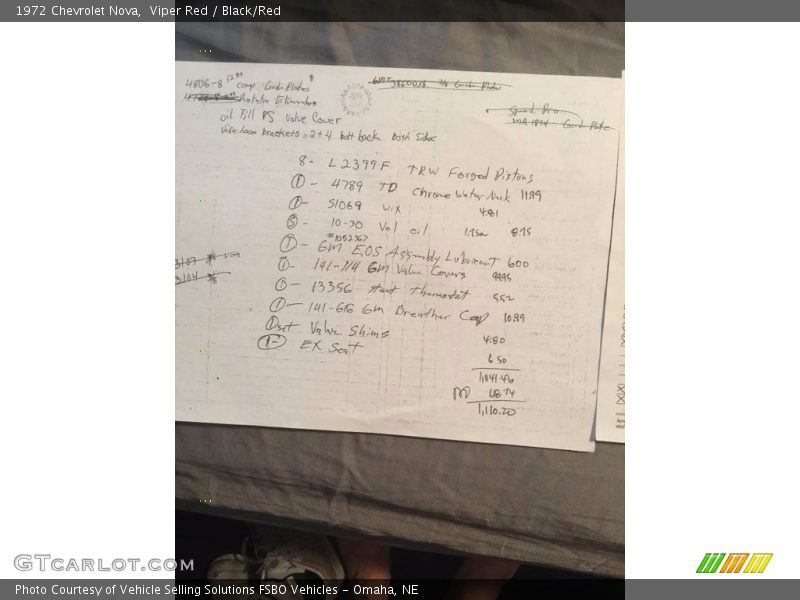 1972 Chevrolet Nova, Viper Red / Black/Red
4806-8 comp Guide Plates
Rotator Eliminators
3/8 Guide Plates
oil Fill PS Valve Cover
brackets 2+4 bolt back both sides
Guide Plate
8- L2399F TRW Forged Pistons
① - 4789 TD Chrome Water Neck 11.99
①- 51069 wix 4.81
⑤- 10-30 Val oil 1.75ea 8.75
#1052367
①- GM EOS Assembly Lubricant 6.00
①- 141-114 GM Valve Covers
①- 13356 Thermostat 5.52
①- 141-616 GM Breather Cap 10.99
① set Valve Shims 4.80
①- EX Seat 6.50
1,041.46
68.74
1,110.20
GTcarlot.com
Photo Courtesy of Vehicle Selling Solutions FSBO Vehicles - Omaha, NE